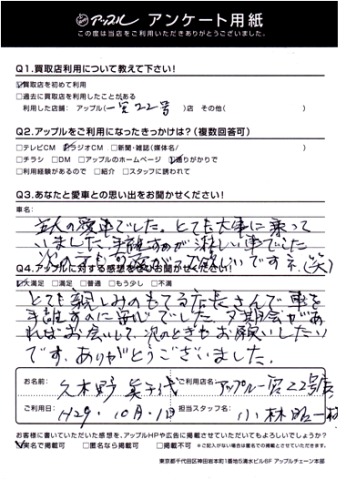 アップル アンケート用紙
この度は当店をご利用いただきありがとうございました。
Q1.買取店利用について教えて下さい!
☑買取店を初めて利用
□過去に買取店を利用したことがある
利用した店舗: アップル(一宮22号)店 その他( )
Q2.アップルをご利用になったきっかけは?(複数回答可)
□テレビCM ☑ラジオCM □新聞・雑誌(媒体名/ )
□チラシ □DM □アップルのホームページ ☑通りがかりで
□利用経験があるので □紹介 □スタッフに誘われて
Q3.あなたと愛車との思い出をお聞かせください!
車名:
主人の愛車でした。とても大事に乗って
いました、手離すのが淋しい車でした
Q4.アップルに対する感想をお聞かせください!
☑大満足 □満足 □普通 □もう少し □不満
とても親しみのもてる店長さんで車を
手離すのに安心でした。又機会があ
ればお会いして、次のときもお願いしたい
です、ありがとうございました。
お名前: 久木野 美千代 ご利用店名: アップル一宮22号店
ご利用日: H29.10.1日 担当スタッフ名: 小林
お客様に書いていただいた感想を、アップルHPや広告に掲載させていただいてもよろしいでしょうか?
☑実名で掲載可 □匿名なら掲載可 □掲載不可 ※ご記入がない場合は匿名での掲載とさせていただきます。
東京都千代田区神田岩本町1番地5清水ビル6F アップルチェーン本部